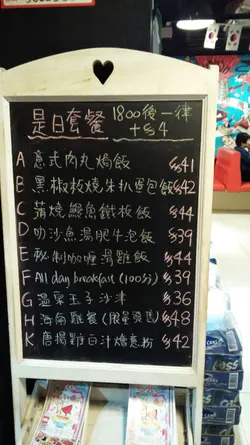 是日套餐
1800後一律
+$4
A 意式肉丸焗飯 $41
B 黑椒板燒朱扒蛋包飯 $42
C 蒲燒鰻魚鐵板飯 $44
D 叻沙魚湯肥牛泡飯 $39
E 秘制咖喱湯雞飯 $44
F All day breakfast (100分) $39
G 溫泉玉子沙律 $36
H 海南雞餐 (限量發售) $48
K 唐揚雞白汁燴意粉 $42